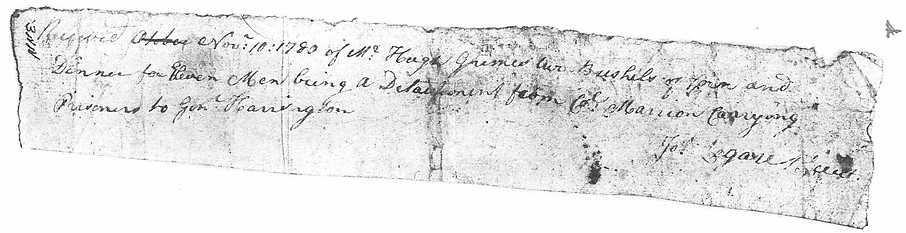 Received October Novr. 10: 1780 of Mr. Hugh Grimes two Bushels of Corn and
Dinner for Eleven Men being a Detachment from Col. Marrion Carrying
Prisoners to Genl. Harrington
Jos. Legare Lieut